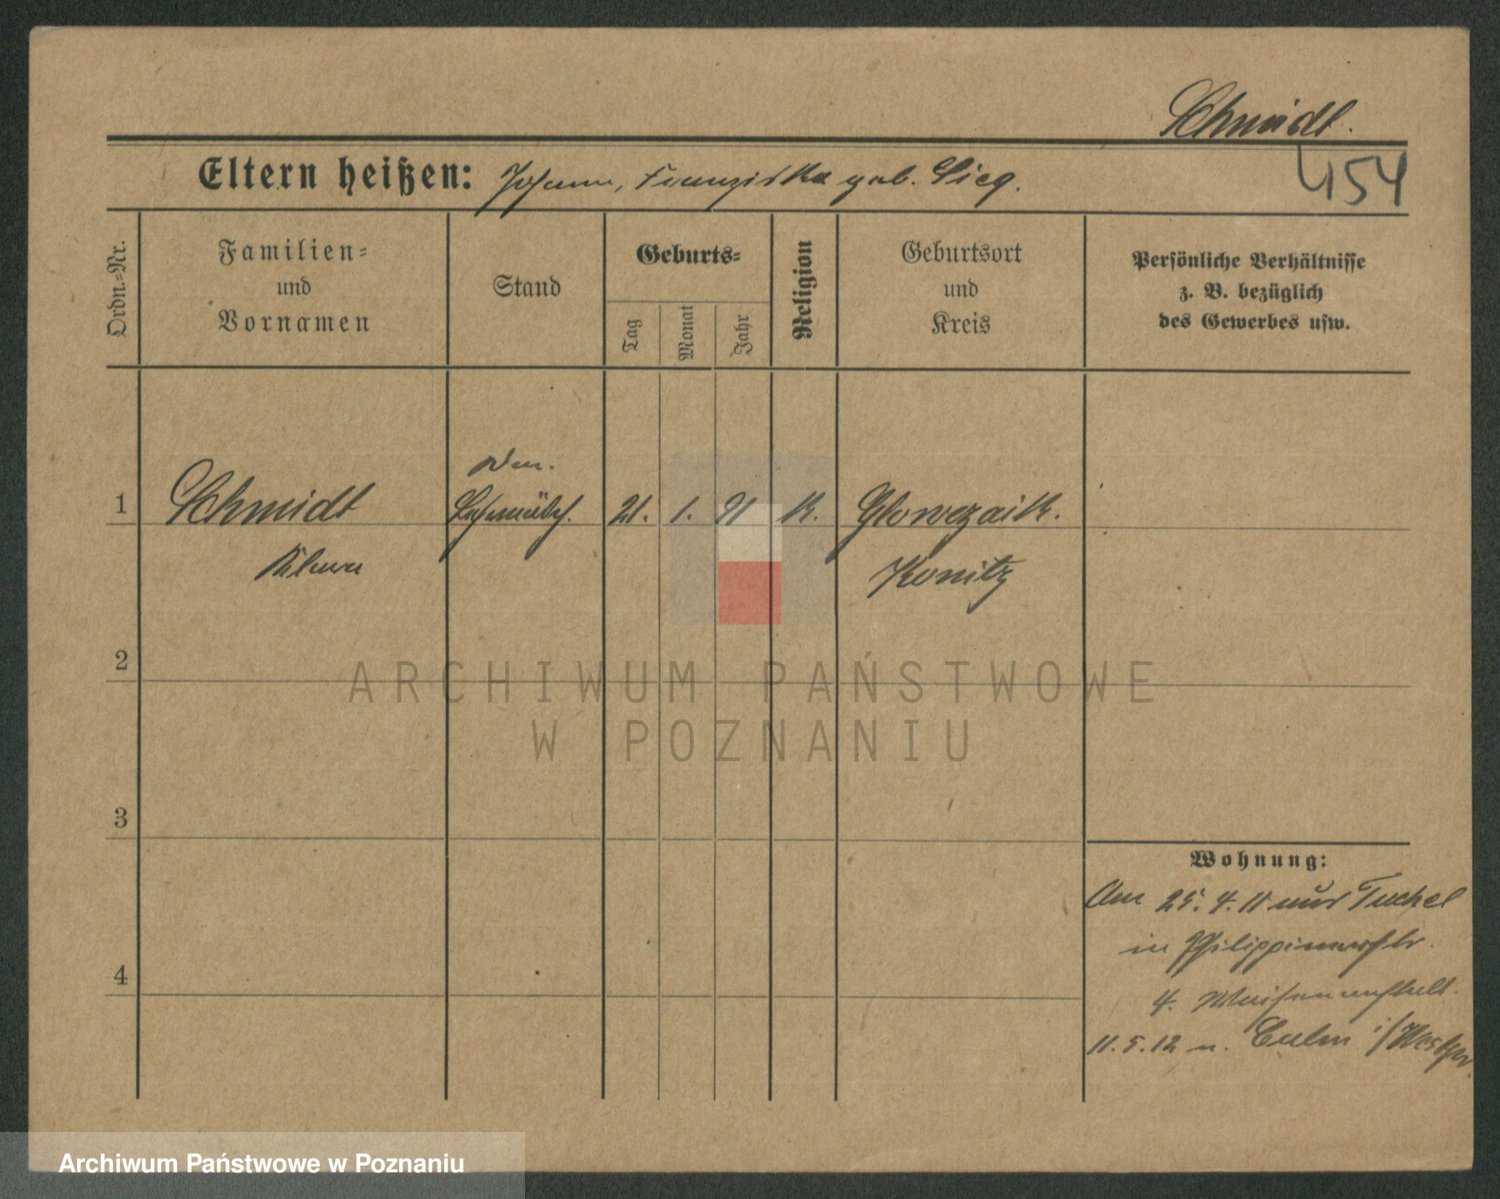 Schmidt.
454
Eltern heißen: Johann, Franziska geb. Sieg.
Ordn.-Nr.
Familien-
und
Vornamen
Stand
Geburts-
Tag
Monat
Jahr
Religion
Geburtsort
und
Kreis
Persönliche Verhältnisse
z. B. bezüglich
des Gewerbes usw.
1
Schmidt
21. 1. 91 K.
Konitz
2
3
4
Wohnung:
Am 25. 4. 11 aus Tuchel
in Philippinenstr.
4. Waisenanstalt.
11.5.12 n. Culm i/Westpr.
ARCHIWUM PAŃSTWOWE
W POZNANIU
Archiwum Państwowe w Poznaniu